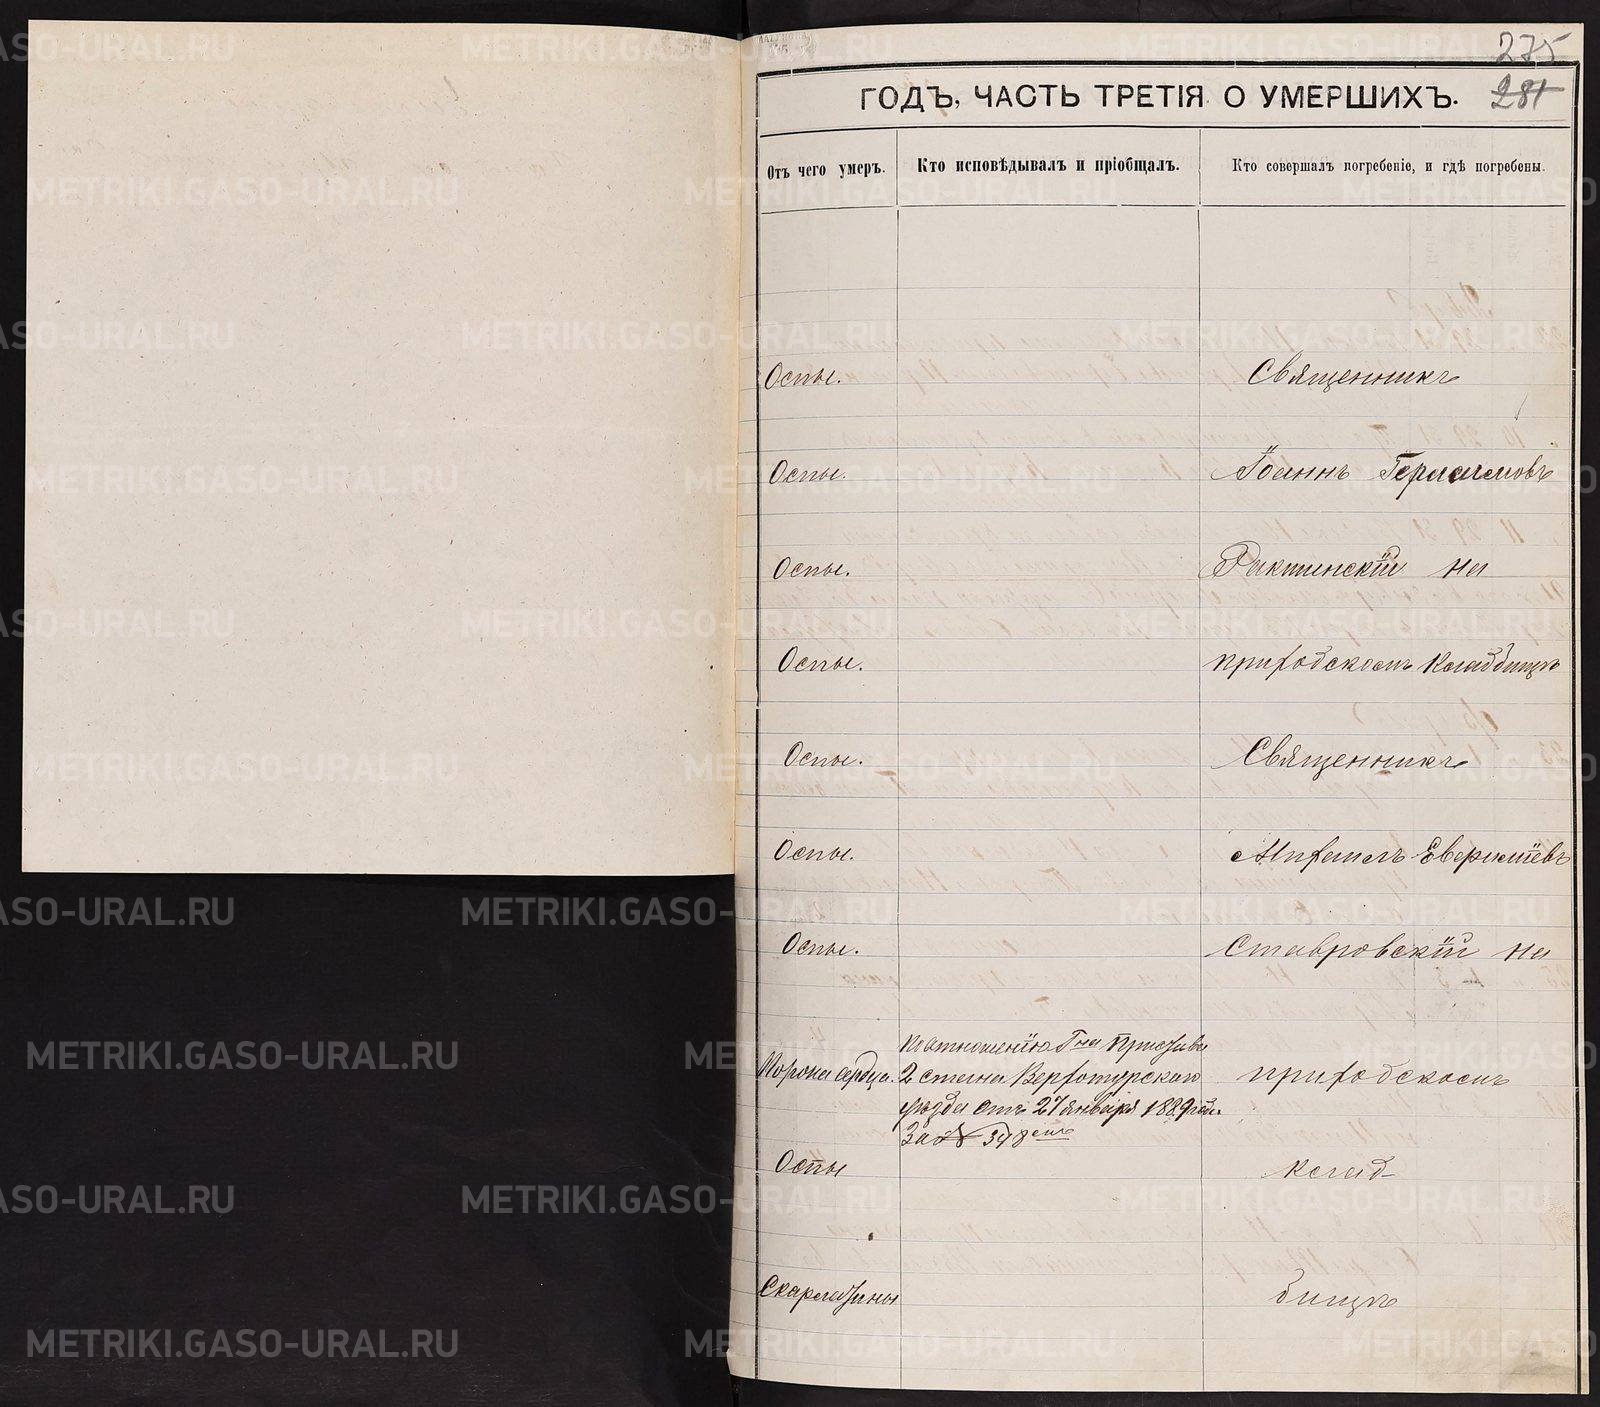 275
281
ГОДЪ, ЧАСТЬ ТРЕТІЯ О УМЕРШИХЪ.
Отъ чего умеръ.
Кто исповѣдывалъ и пріобщалъ.
Кто совершалъ погребеніе, и гдѣ погребены.
Оспы.
Священникъ
Оспы.
Іоаннъ Герасимовъ
Оспы.
Ракшинскій на
Оспы.
приходскомъ кладбищѣ
Оспы.
Священникъ
Оспы.
Михаилъ Евфиміевъ
Оспы.
Ставровскій на
Порока сердца.
По отношенію Гна Пристава
2 стана Верхотурскаго
уѣзда отъ 27 января 1889 года
За № 348
приходскомъ
Оспы
клад-
Скарлатины
бищѣ
METRIKI.GASO-URAL.RU